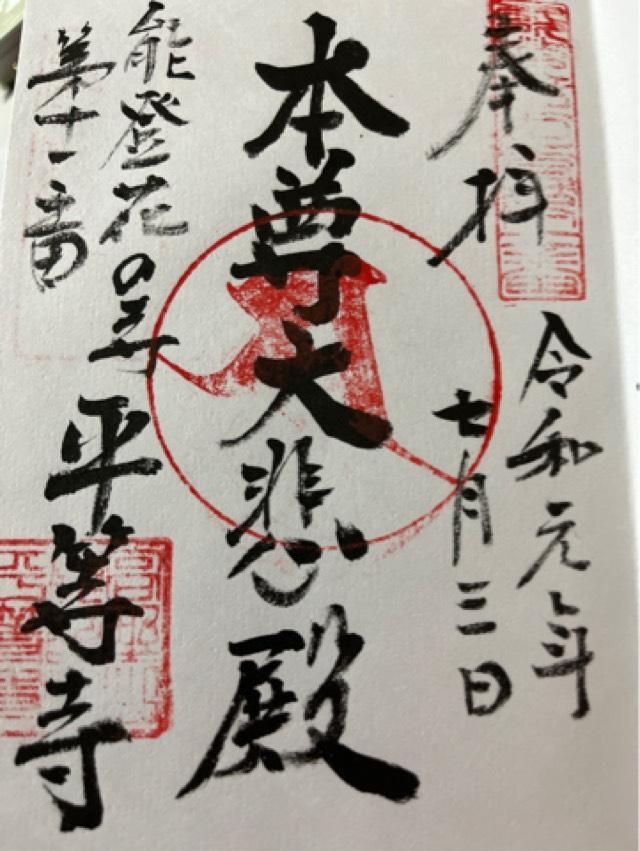 奉拝
令和元年
七月三日
本尊大悲殿
能登花の寺平等寺
第十一番